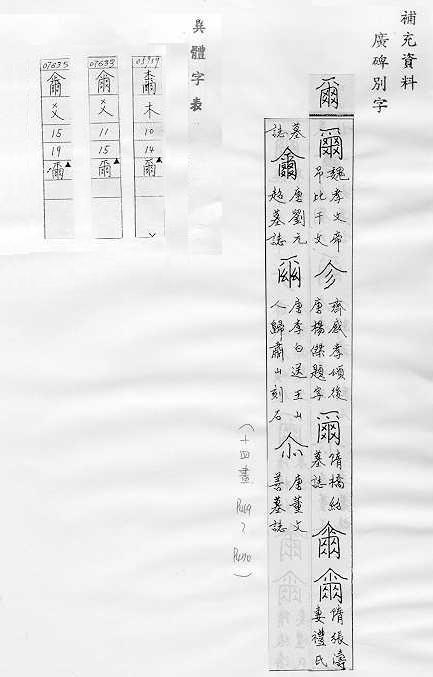 補充資料
廣碑別字
爾
爾 魏孝文帝
吊比干文
尒 齊感孝頌後
唐楊傑題字
爾 隋橋紹
墓誌
爾
爾 隋張濤
妻禮氏
墓
誌
爾 唐劉元
超墓誌
爾 唐李白送王山
人歸肅山刻石
尒 唐董文
善墓誌
(十四畫 P449
P450)
異體字表
07635 07633 05959
爾 爾 爾
爻 爻 木
15 11 10
19 15 14
爾 爾 爾